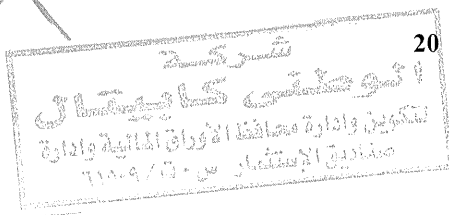 20
شركة
الوطنى كابيتال
لتكوين وإدارة محافظ الأوراق المالية وإدارة
صناديق الإستثمار س.